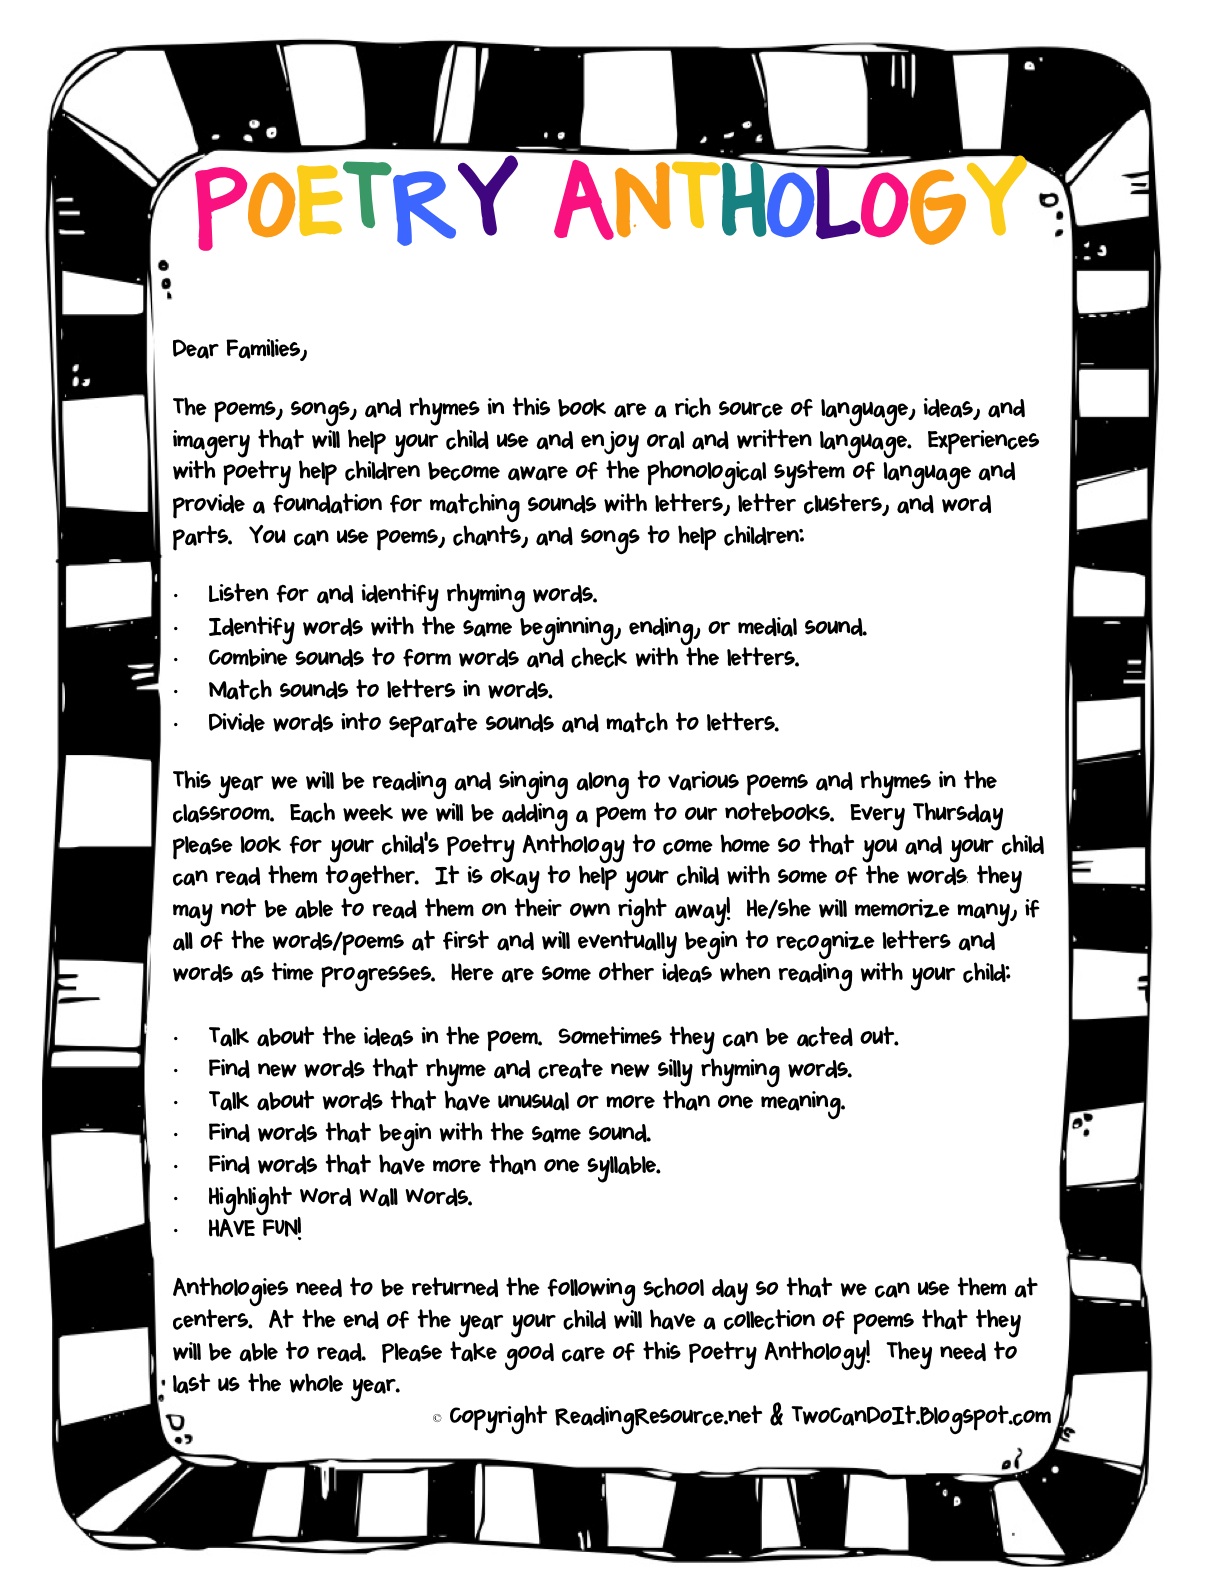 POETRY ANTHOLOGY
Dear Families,
The poems, songs, and rhymes in this book are a rich source of language, ideas, and
imagery that will help your child use and enjoy oral and written language. Experiences
with poetry help children become aware of the phonological system of language and
provide a foundation for matching sounds with letters, letter clusters, and word
parts. You can use poems, chants, and songs to help children:
· Listen for and identify rhyming words.
· Identify words with the same beginning, ending, or medial sound.
· Combine sounds to form words and check with the letters.
· Match sounds to letters in words.
· Divide words into separate sounds and match to letters.
This year we will be reading and singing along to various poems and rhymes in the
classroom. Each week we will be adding a poem to our notebooks. Every Thursday
please look for your child's Poetry Anthology to come home so that you and your child
can read them together. It is okay to help your child with some of the words they
may not be able to read them on their own right away! He/She will memorize many, if
all of the words/poems at first and will eventually begin to recognize letters and
words as time progresses. Here are some other ideas when reading with your child:
· Talk about the ideas in the poem. Sometimes they can be acted out.
· Find new words that rhyme and create new silly rhyming words.
· Talk about words that have unusual or more than one meaning.
· Find words that begin with the same sound.
· Find words that have more than one syllable.
· Highlight Word Wall Words.
· HAVE FUN!
Anthologies need to be returned the following school day so that we can use them at
centers. At the end of the year your child will have a collection of poems that they
will be able to read. Please take good care of this Poetry Anthology! They need to
last us the whole year.
© Copyright ReadingResource.net & TwoCanDoIt.Blogspot.com